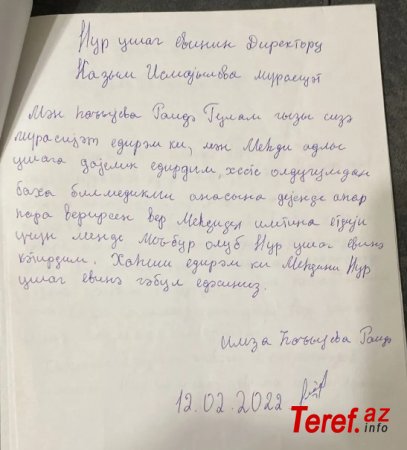 Нур ушаг евинин Директору
Назым Исмајылова мурасиэт
Мəн Һачыјева Раидə Гулам гызы сизə
мурасиjэт едирəм ки, мəн Меһди адлы
ушага дајəлик едирдим, хəстə олдуғумдан
баха билмедикми анасына дејенде апар
пара верирсен вер Меһдидəн имтина етдији
учун менде мəчбур олуб Нур ушаг евинə
кəтирдим. Хаһиш едирəм ки Меһдини Нур
ушаг евинə гəбул едəсиниз.
имза Һачыјева Раидə
12.02.2022
Teref.az
info